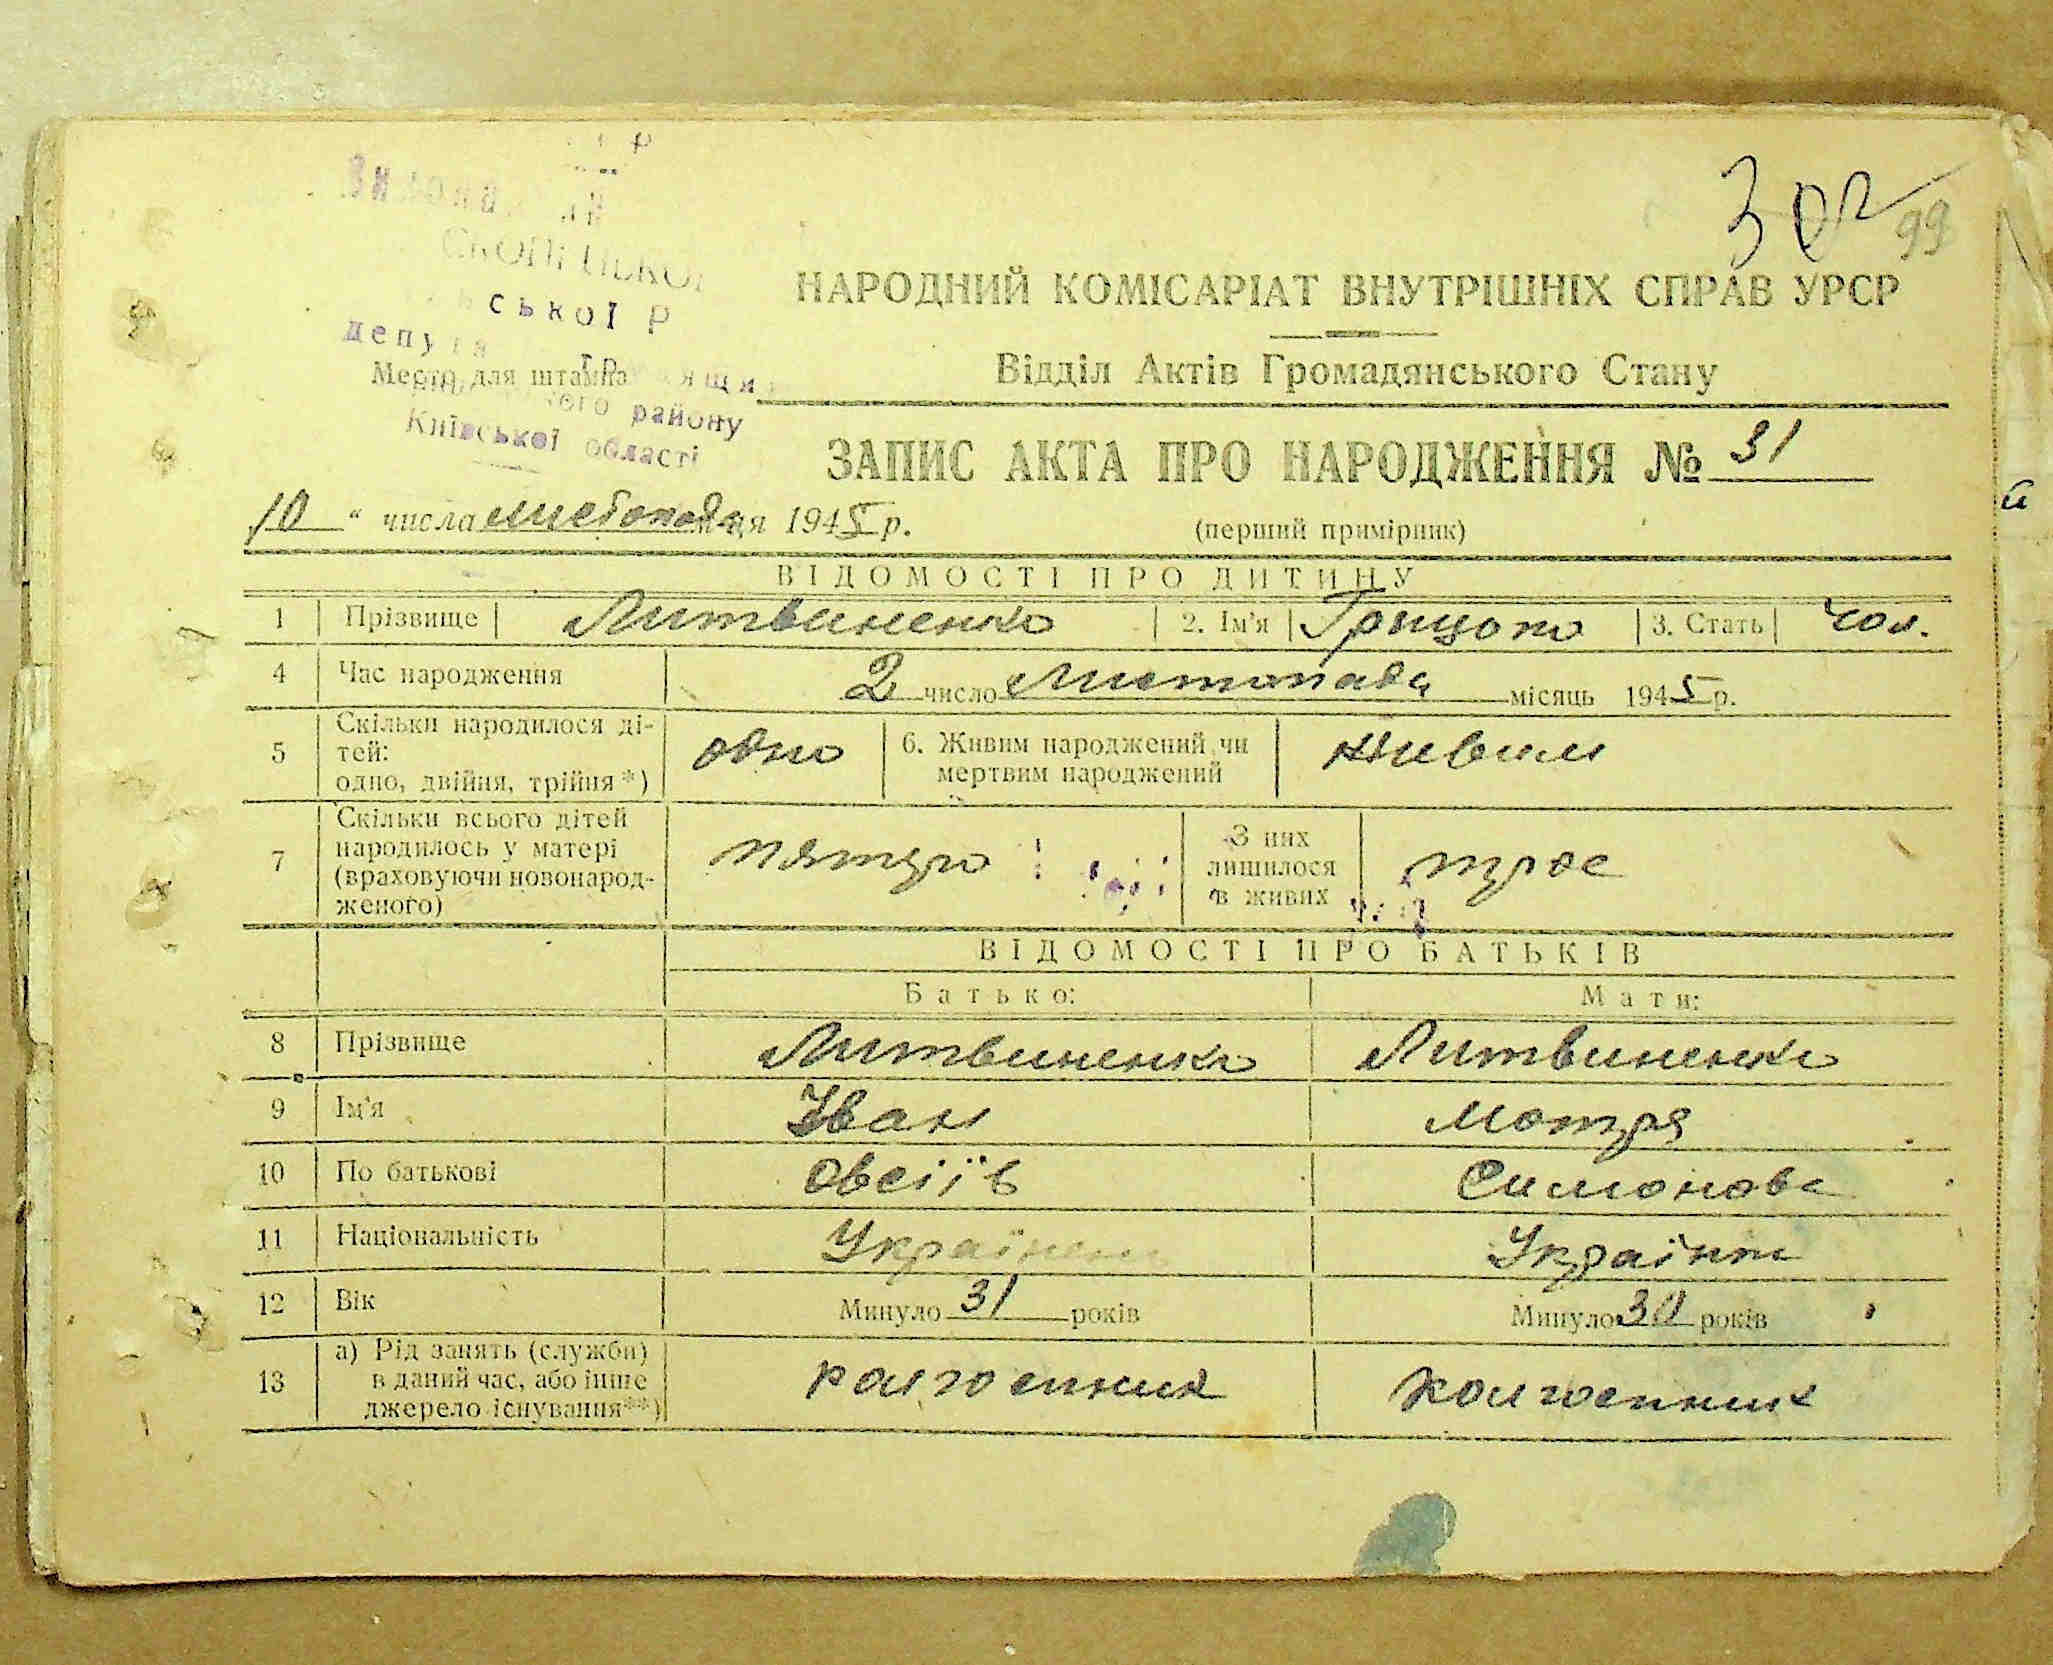 302
99
НАРОДНИЙ КОМІСАРІАТ ВНУТРІШНІХ СПРАВ УРСР
Відділ Актів Громадянського Стану
ської Р
депута
Місце для штампа
ого району
Київської області
ЗАПИС АКТА ПРО НАРОДЖЕННЯ № 31
10 " числа листопада ця 1945 р.
(перший примірник)
ВІДОМОСТІ ПРО ДИТИНУ
1 Прізвище Литвиненко 2. Ім'я Грицько 3. Стать Чол.
4 Час народження 2 число Листопада місяць 1945 р.
5 Скільки народилося ді-
тей:
одно, двійня, трійня *) одно 6. Живим народжений чи
мертвим народжений живим
7 Скільки всього дітей
народилось у матері
(враховуючи новонарод-
женого) пятеро З них
лишилося
в живих троє
ВІДОМОСТІ ПРО БАТЬКІВ
Батько: Мати:
8 Прізвище Литвиненко Литвиненко
9 Ім'я Іван Мотря
10 По батькові Овсіїв Симонова
11 Національність Українець Українка
12 Вік Минуло 31 років Минуло 30 років
13 а) Рід занять (служби)
в даний час, або інше
джерело існування**) колгоспник колгоспник